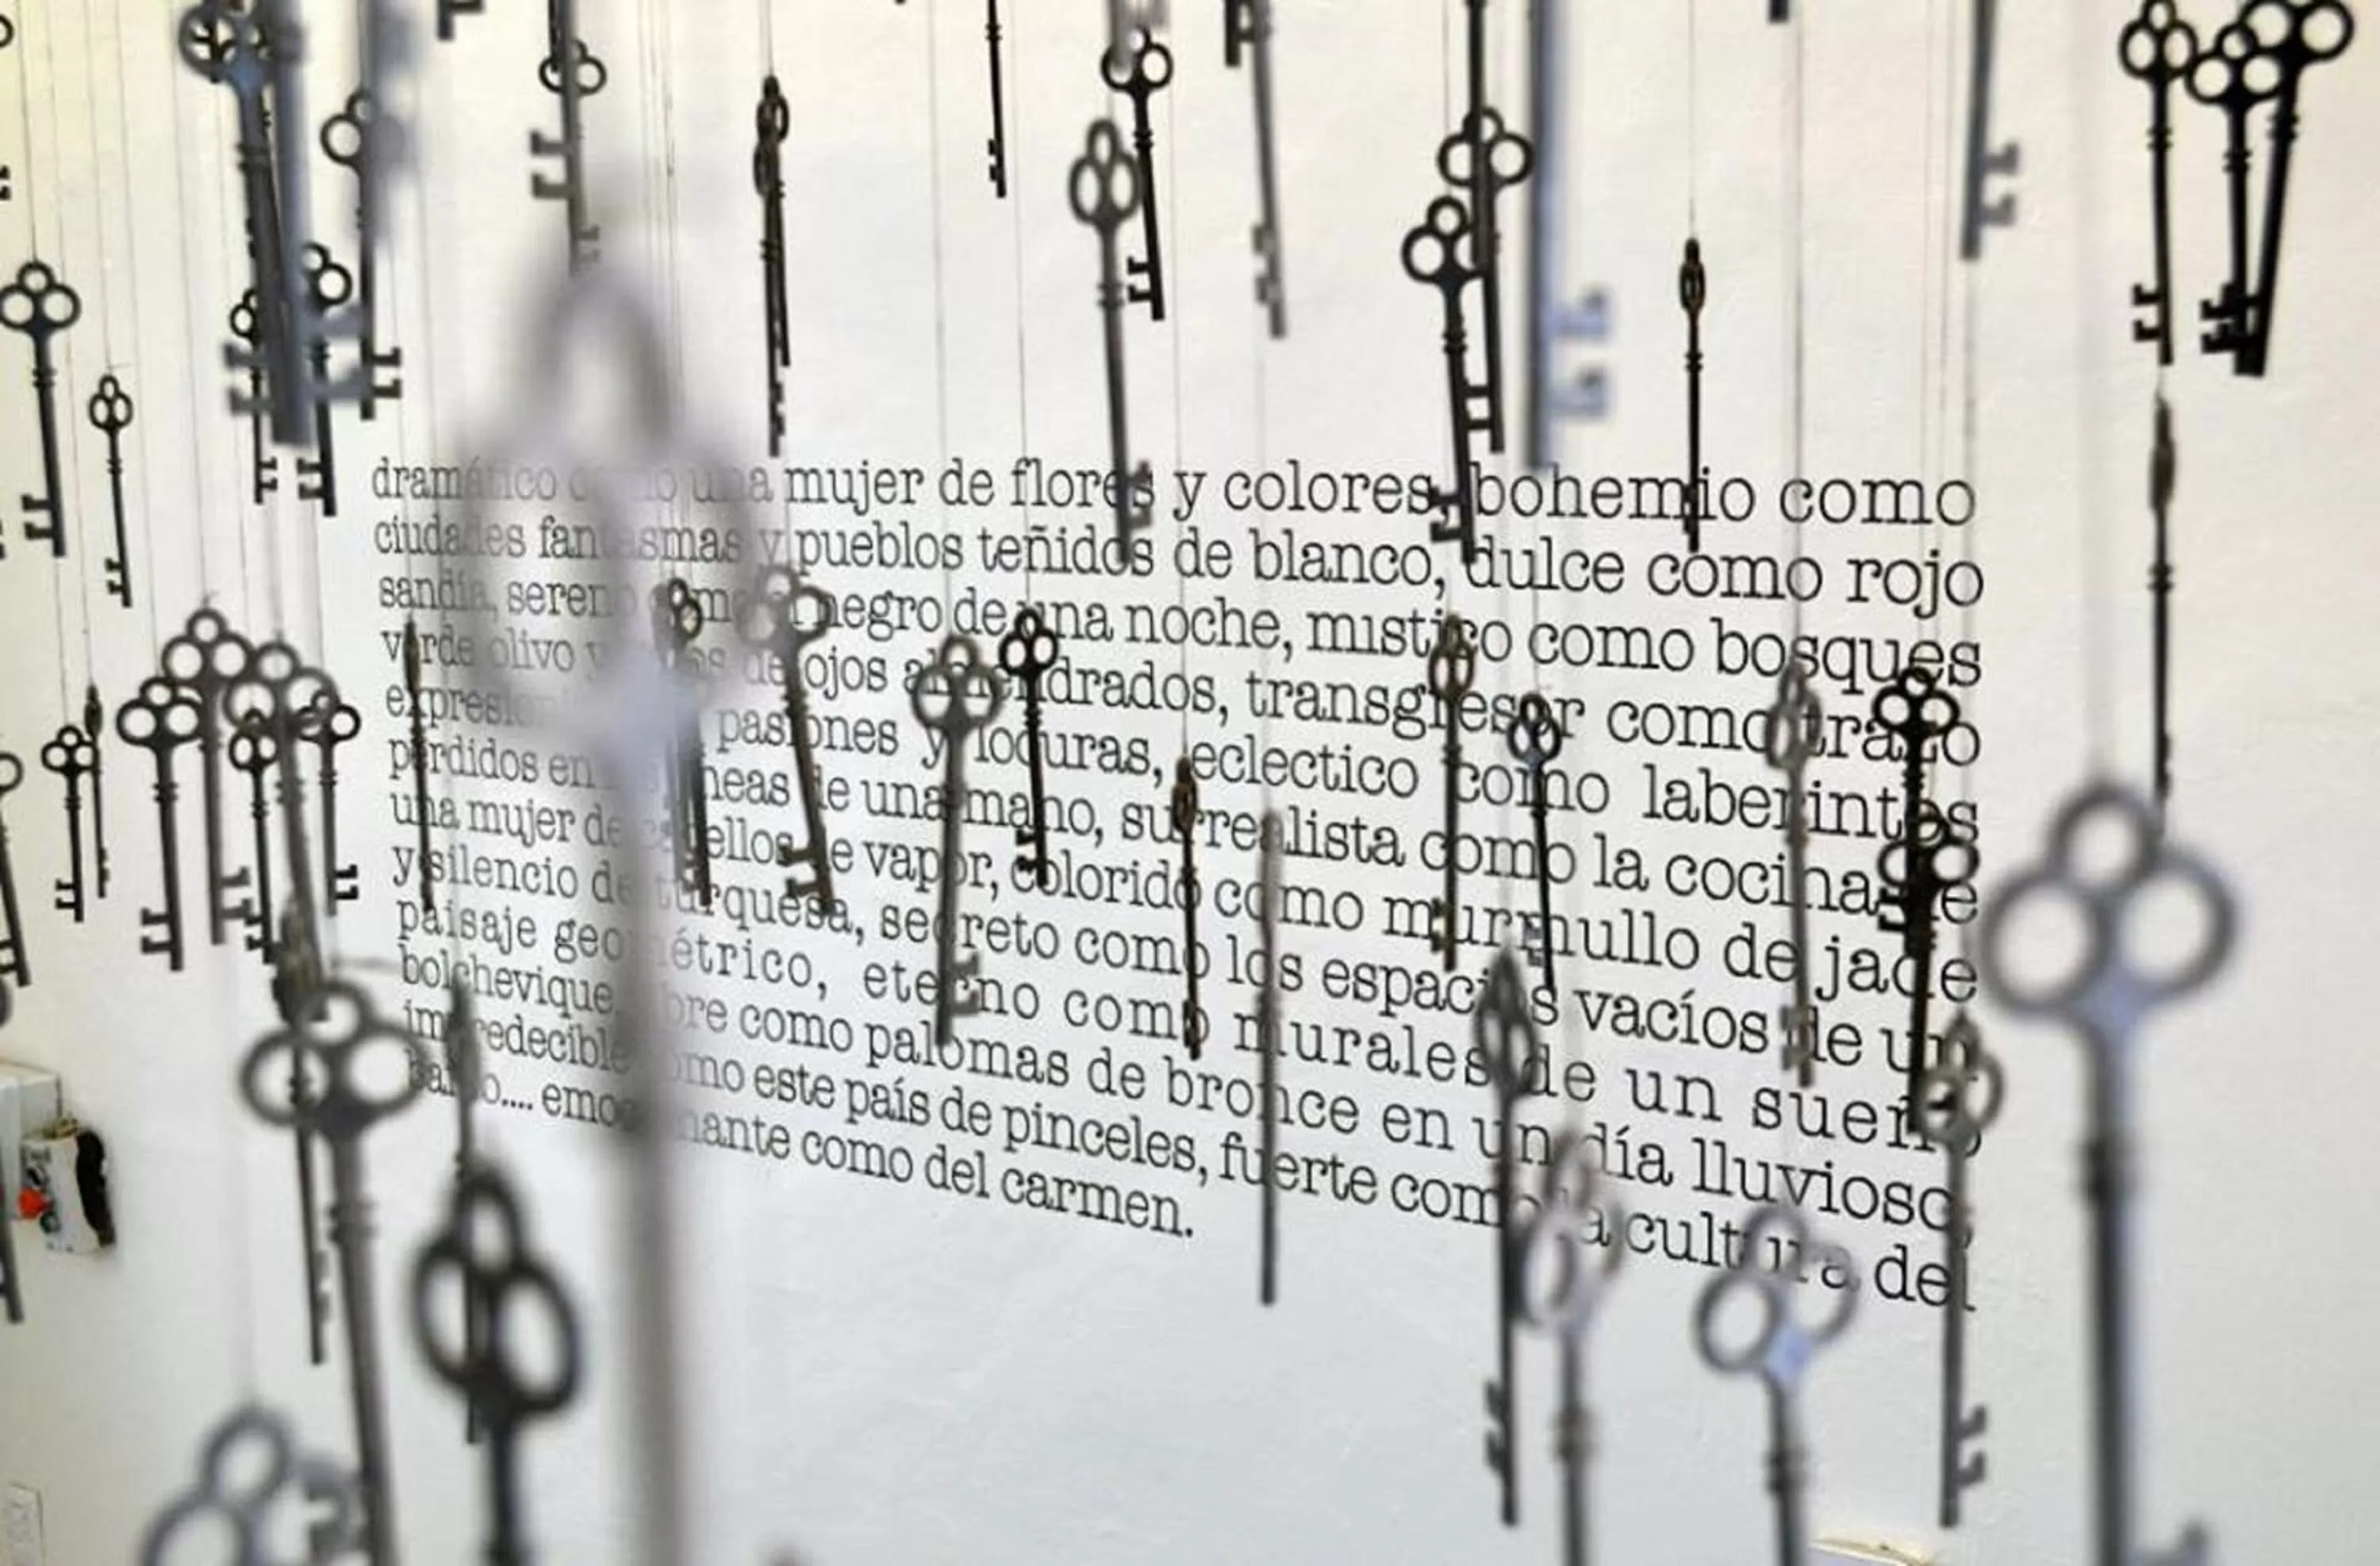 dramático como una mujer de flores y colores, bohemio como
ciudades fantasmas y pueblos teñidos de blanco, dulce como rojo
sandía, sereno como negro de una noche, mistico como bosques
verde olivo y de ojos almendrados, transgresor como trazo
pasiones y locuras, eclectico como laberintos
perdidos en líneas de una mano, surrealista como la cocina de
una mujer de cabellos de vapor, colorido como murmullo de jade
y silencio de turquesa, secreto como los espacios vacíos de un
paisaje geométrico, eterno como murales de un sueño
bolchevique, libre como palomas de bronce en un día lluvioso,
impredecible como este país de pinceles, fuerte como la cultura del
barro.... emocionante como del carmen.